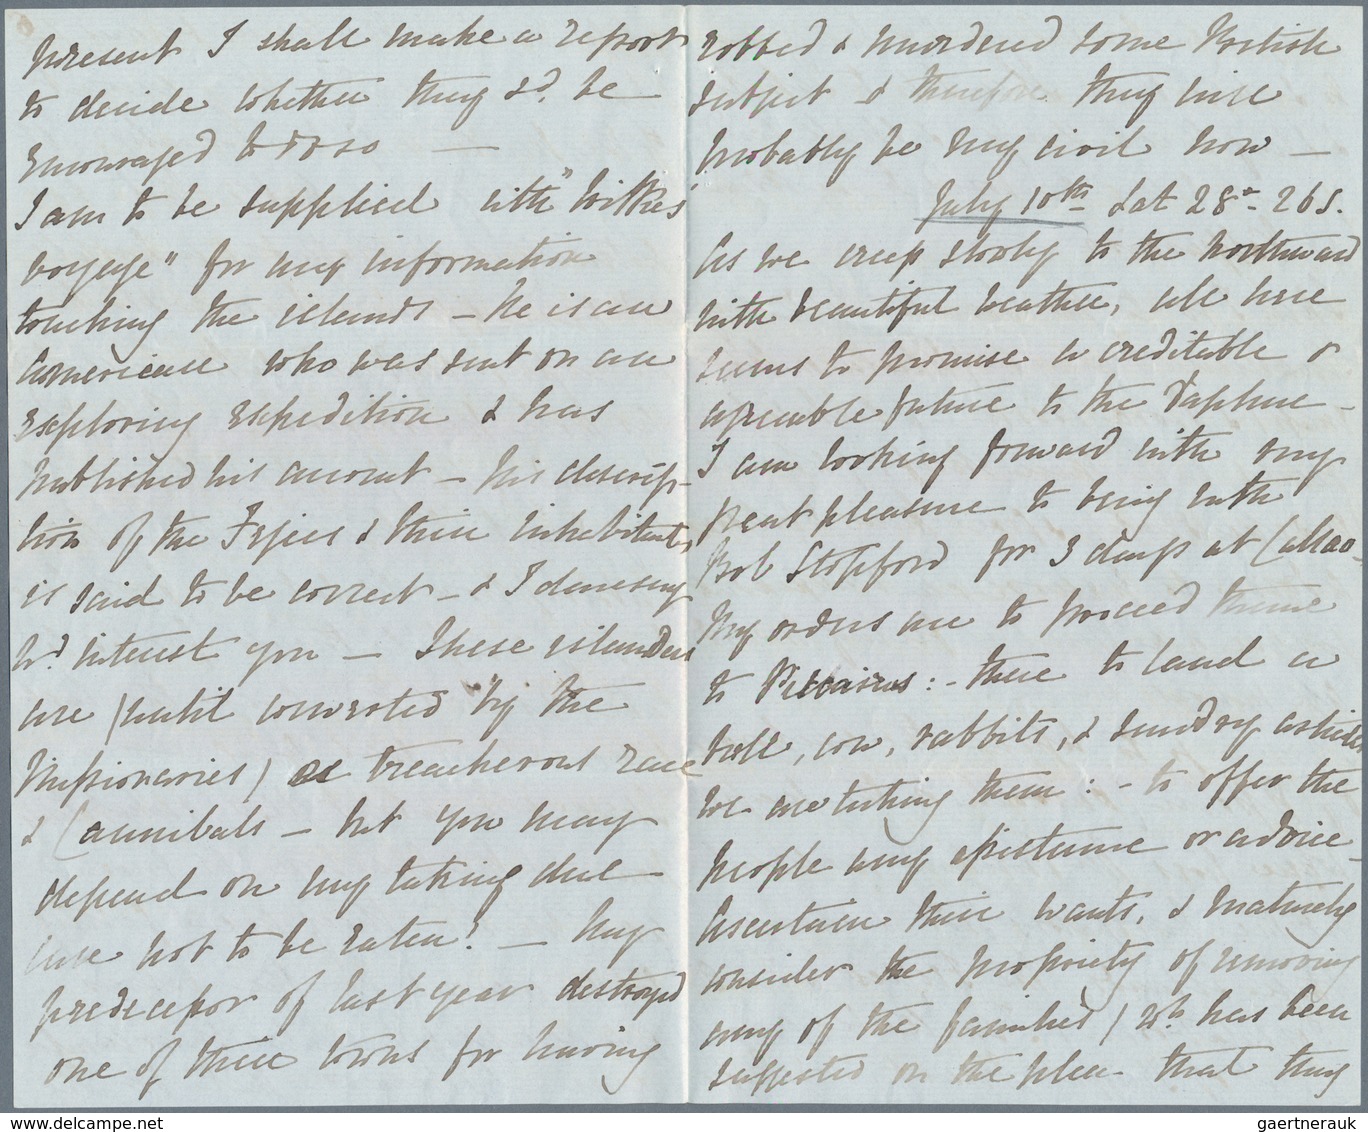 present I shall make a report
to decide whether they sd. be
encouraged to do so —
I am to be supplied with "Wilkes'
voyage" for any information
touching the islands — He is an
American who was sent on an
exploring expedition & has
published his account — His descrip-
tion of the Fejees & their inhabitants
is said to be correct — & I daresay
wd. interest you — These islanders
are (until converted by the
Missionaries) a treacherous race
& Cannibals — but you may
depend on my taking due
care not to be eaten! — My
predecessor of last year destroyed
one of their towns for having
robbed & murdered some British
subject & therefore they will
probably be very civil now —
July 10th Lat 28°- 26 S.
As we creep slowly to the northward
with beautiful weather, all here
seems to promise a creditable &
agreeable future to the Daphne -
I am looking forward with very
great pleasure to being with
Bob Stopford for 3 days at Callao -
My orders are to proceed thence
to Pitcairns : - there to land a
bull, cow, rabbits, & sundry articles
we are taking them : - to offer the
people any assistance or advice -
Ascertain their wants, & maturely
consider the propriety of removing
any of the families (wh. has been
suggested on the plea that they
gaertnerauk @ www.delcampe.net